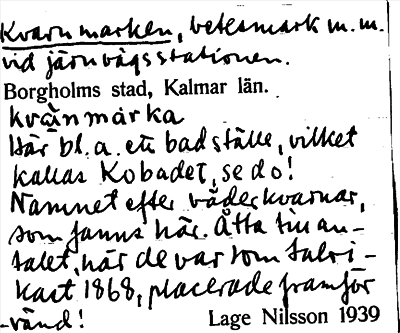 Kvarnmarken, betesmark m.m.
vid järnvägsstationen.
Borgholms stad, Kalmar län.
kvänmárka
Här bl.a. ett badställe, vilket
kallas Kobadet, se do!
Namnet efter väderkvarnar,
som fanns här. Åtta till an-
talet, när de var som talri-
kast 1868, placerade framför
-vänd!
Lage Nilsson 1939